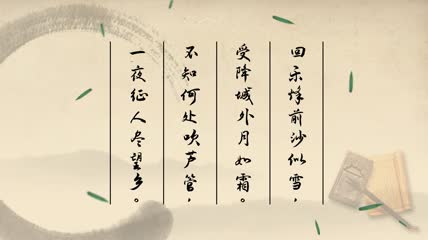 回乐烽前沙似雪,
受降城外月如霜。
不知何处吹芦管,
一夜征人尽望乡。